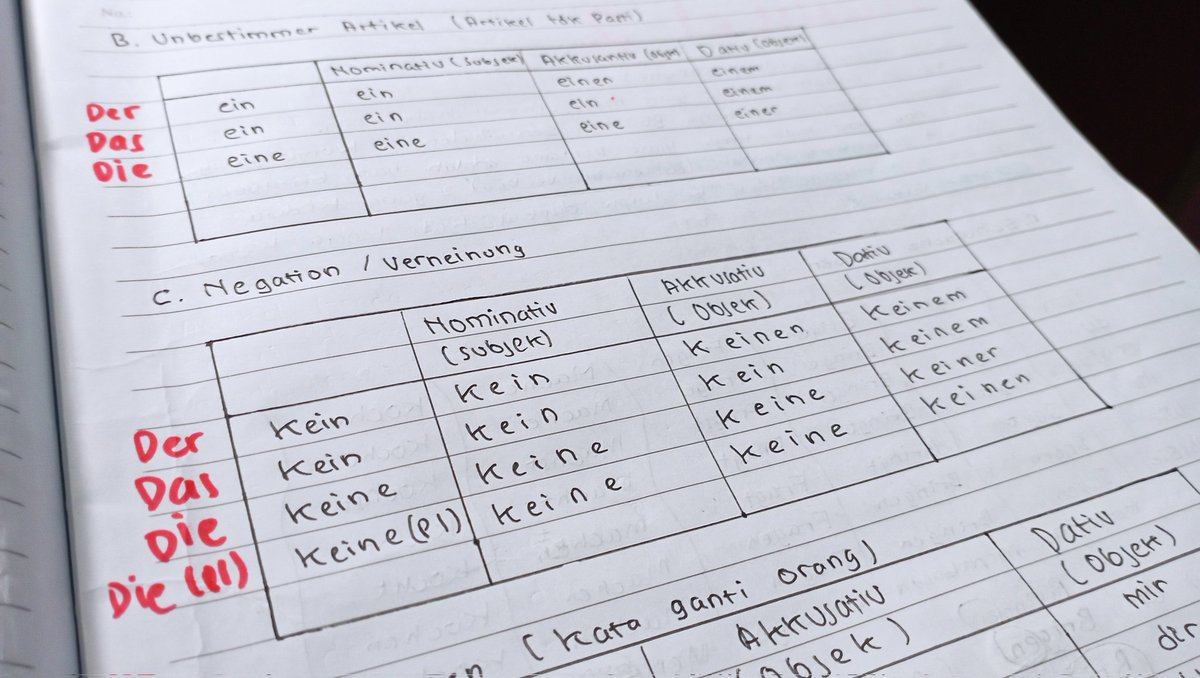 No:
B. Unbestimmer Artikel (Artikel tdk Pasti)
Nominativ (Subjek) Akkusantiv (Objek) Dativ (Objek)
Der ein ein einen einem
Das ein ein ein einem
Die eine eine eine einer
C. Negation / Verneinung
Nominativ (Subjek) Akkusativ (Objek) Dativ (Objek)
Der Kein Kein Keinen Keinem
Das Kein Kein Kein Keinem
Die Keine Keine Keine Keiner
Die (Pl) Keine (Pl) Keine Keine Keinen
(Kata ganti orang)
Akkusativ (Objek) Dativ (Objek)
mir
dir